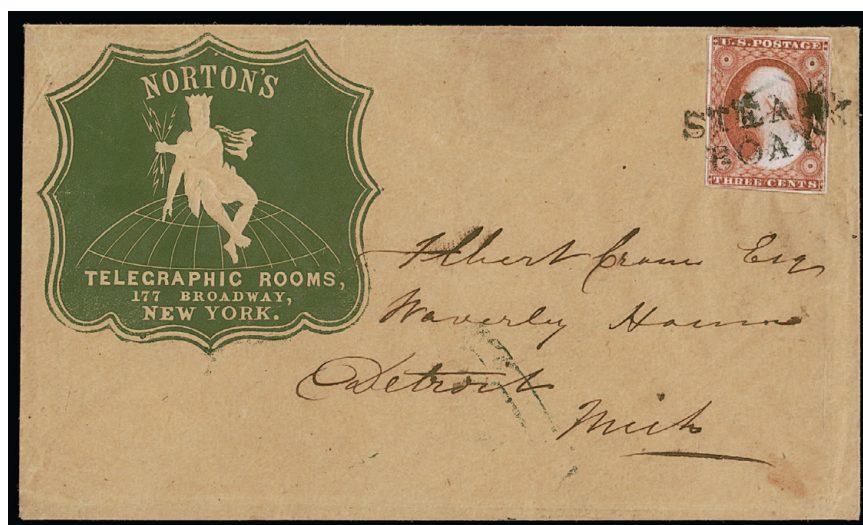 NORTON'S
TELEGRAPHIC ROOMS,
177 BROADWAY,
NEW YORK.
U.S. POSTAGE
THREE CENTS
STEAM
BOAT
Albert Crane Esq
Waverly House
Detroit
Mich